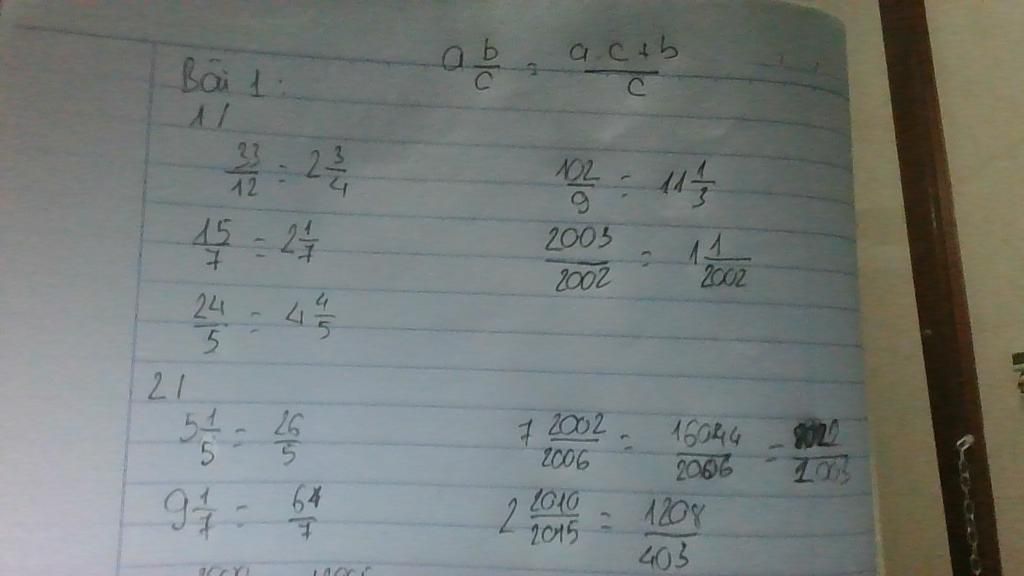 a b/c = a.c+b/c
Bài 1:
1/
33/12 = 2 3/4 102/9 = 11 1/3
15/7 = 2 1/7 2003/2002 = 1 1/2002
24/5 = 4 4/5
2/
5 1/5 = 26/5 7 2002/2006 = 16044/2006 = /2003
9 1/7 = 64/7 2 2010/2015 = 1208/403